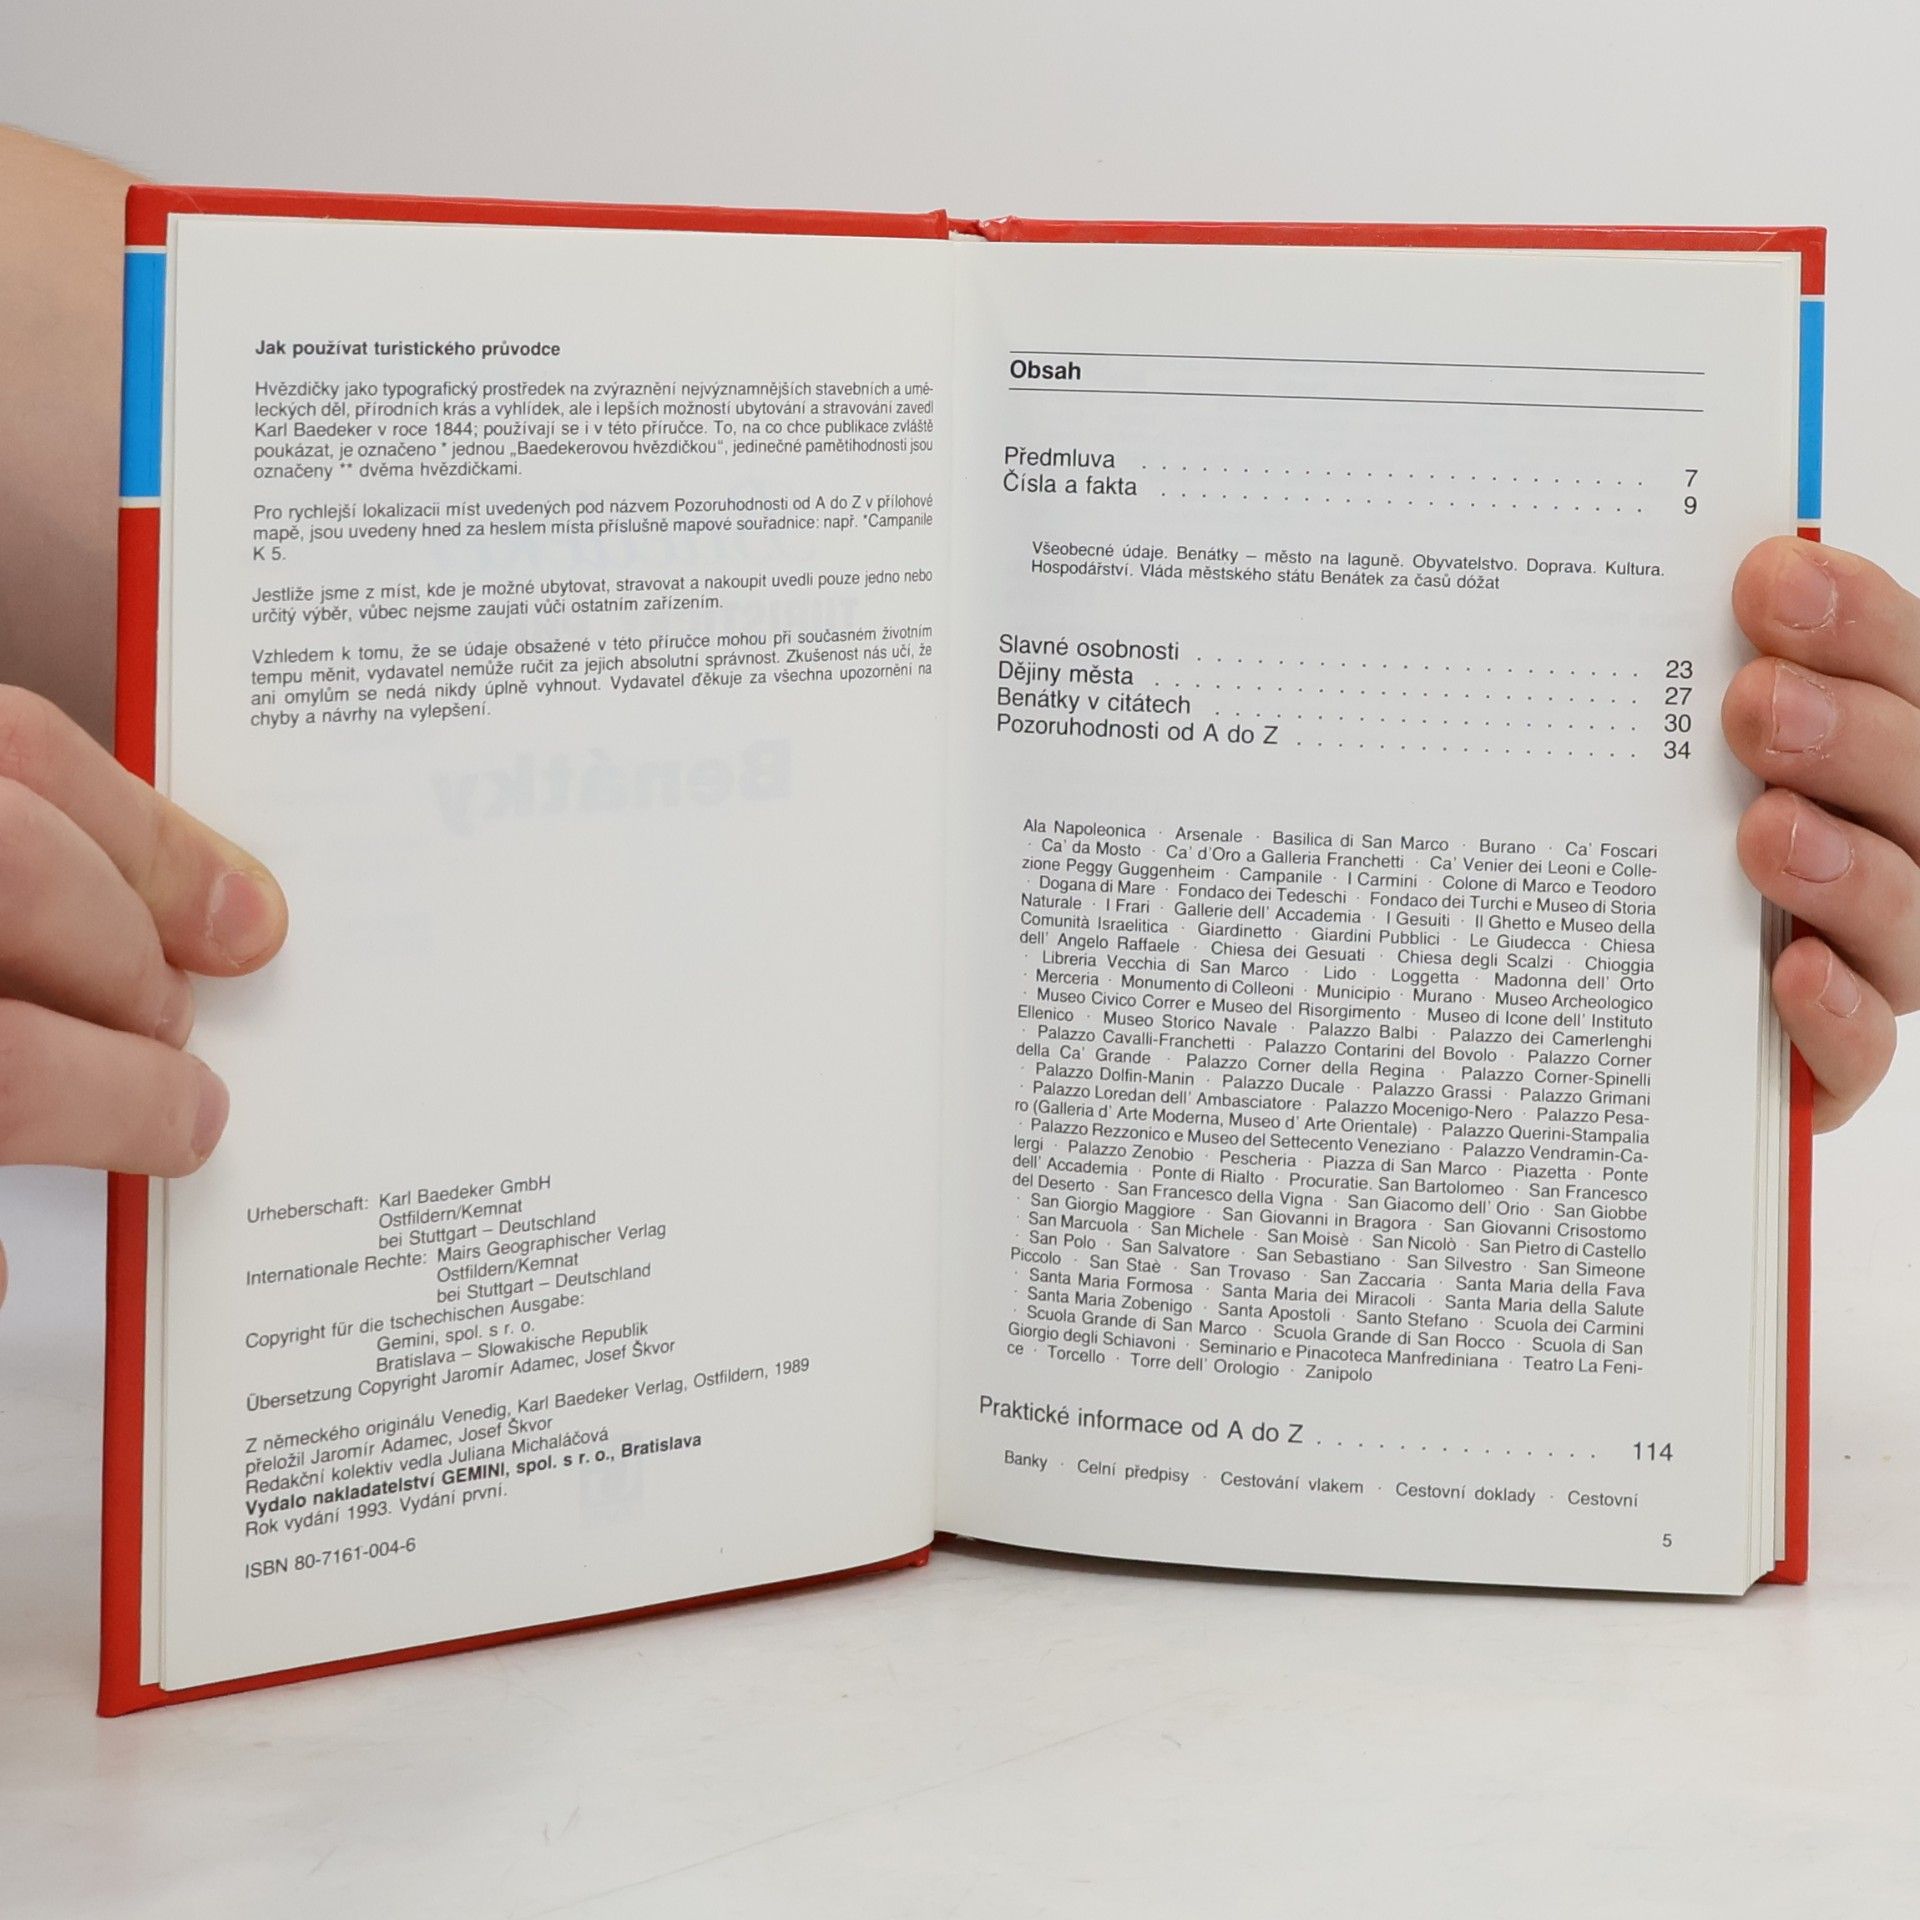 Jak používat turistického průvodce
Hvězdičky jako typografický prostředek na zvýraznění nejvýznamnějších stavebních a umě-
leckých děl, přírodních krás a vyhlídek, ale i lepších možností ubytování a stravování zavedl
Karl Baedeker v roce 1844; používají se i v této příručce. To, na co chce publikace zvláště
poukázat, je označeno * jednou „Baedekerovou hvězdičkou“, jedinečné pamětihodnosti jsou
označeny ** dvěma hvězdičkami.
Pro rychlejší lokalizacii míst uvedených pod názvem Pozoruhodnosti od A do Z v přílohové
mapě, jsou uvedeny hned za heslem místa příslušně mapové souřadnice: např. *Campanile
K 5.
Jestliže jsme z míst, kde je možné ubytovat, stravovat a nakoupit uvedli pouze jedno nebo
určitý výběr, vůbec nejsme zaujati vůči ostatním zařízením.
Vzhledem k tomu, že se údaje obsažené v této příručce mohou při současném životním
tempu měnit, vydavatel nemůže ručit za jejich absolutní správnost. Zkušenost nás učí, že
ani omylům se nedá nikdy úplně vyhnout. Vydavatel ďěkuje za všechna upozornění na
chyby a návrhy na vylepšení.
Urheberschaft: Karl Baedeker GmbH
Ostfildern/Kemnat
bei Stuttgart – Deutschland
Internationale Rechte: Mairs Geographischer Verlag
Ostfildern/Kemnat
bei Stuttgart – Deutschland
Copyright für die tschechischen Ausgabe:
Gemini, spol. s r. o.
Bratislava – Slowakische Republik
Übersetzung Copyright Jaromír Adamec, Josef Škvor
Z německého originálu Venedig, Karl Baedeker Verlag, Ostfildern, 1989
přeložil Jaromír Adamec, Josef Škvor
Redakční kolektiv vedla Juliana Michaláčová
Vydalo nakladatelství GEMINI, spol. s r. o., Bratislava
Rok vydání 1993. Vydání první.
ISBN 80-7161-004-6
Obsah
Předmluva . . . . . . . . . . . . . . . . . . . 7
Čísla a fakta . . . . . . . . . . . . . . . . . . 9
Všeobecné údaje. Benátky – město na laguně. Obyvatelstvo. Doprava. Kultura.
Hospodářství. Vláda městského státu Benátek za časů dóžat
Slavné osobnosti . . . . . . . . . . . . . . . . . 23
Dějiny města . . . . . . . . . . . . . . . . . . 27
Benátky v citátech . . . . . . . . . . . . . . . . 30
Pozoruhodnosti od A do Z . . . . . . . . . . . . . 34
Ala Napoleonica · Arsenale · Basilica di San Marco · Burano · Ca' Foscari
· Ca' da Mosto · Ca' d'Oro a Galleria Franchetti · Ca' Venier dei Leoni e Colle-
zione Peggy Guggenheim · Campanile · I Carmini · Colone di Marco e Teodoro
· Dogana di Mare · Fondaco dei Tedeschi · Fondaco dei Turchi e Museo di Storia
Naturale · I Frari · Gallerie dell' Accademia · I Gesuiti · Il Ghetto e Museo della
Comunità Israelitica · Giardinetto · Giardini Pubblici · Le Giudecca · Chiesa
dell' Angelo Raffaele · Chiesa dei Gesuati · Chiesa degli Scalzi · Chioggia
· Libreria Vecchia di San Marco · Lido · Loggetta · Madonna dell' Orto
· Merceria · Monumento di Colleoni · Municipio · Murano · Museo Archeologico
· Museo Civico Correr e Museo del Risorgimento · Museo di Icone dell' Instituto
Ellenico · Museo Storico Navale · Palazzo Balbi · Palazzo dei Camerlenghi
· Palazzo Cavalli-Franchetti · Palazzo Contarini del Bovolo · Palazzo Corner
della Ca' Grande · Palazzo Corner della Regina · Palazzo Corner-Spinelli
· Palazzo Dolfin-Manin · Palazzo Ducale · Palazzo Grassi · Palazzo Grimani
· Palazzo Loredan dell' Ambasciatore · Palazzo Mocenigo-Nero · Palazzo Pesa-
ro (Galleria d' Arte Moderna, Museo d' Arte Orientale) · Palazzo Querini-Stampalia
· Palazzo Rezzonico e Museo del Settecento Veneziano · Palazzo Vendramin-Ca-
lergi · Palazzo Zenobio · Pescheria · Piazza di San Marco · Piazetta · Ponte
dell' Accademia · Ponte di Rialto · Procuratie. San Bartolomeo · San Francesco
del Deserto · San Francesco della Vigna · San Giacomo dell' Orio · San Giobbe
· San Giorgio Maggiore · San Giovanni in Bragora · San Giovanni Crisostomo
· San Marcuola · San Michele · San Moisè · San Nicolò · San Pietro di Castello
· San Polo · San Salvatore · San Sebastiano · San Silvestro · San Simeone
Piccolo · San Staè · San Trovaso · San Zaccaria · Santa Maria della Fava
· Santa Maria Formosa · Santa Maria dei Miracoli · Santa Maria della Salute
· Santa Maria Zobenigo · Santa Apostoli · Santo Stefano · Scuola dei Carmini
· Scuola Grande di San Marco · Scuola Grande di San Rocco · Scuola di San
Giorgio degli Schiavoni · Seminario e Pinacoteca Manfrediniana · Teatro La Feni-
ce · Torcello · Torre dell' Orologio · Zanipolo
Praktické informace od A do Z . . . . . . . . . . . 114
Banky · Celní předpisy · Cestování vlakem · Cestovní doklady · Cestovní
5